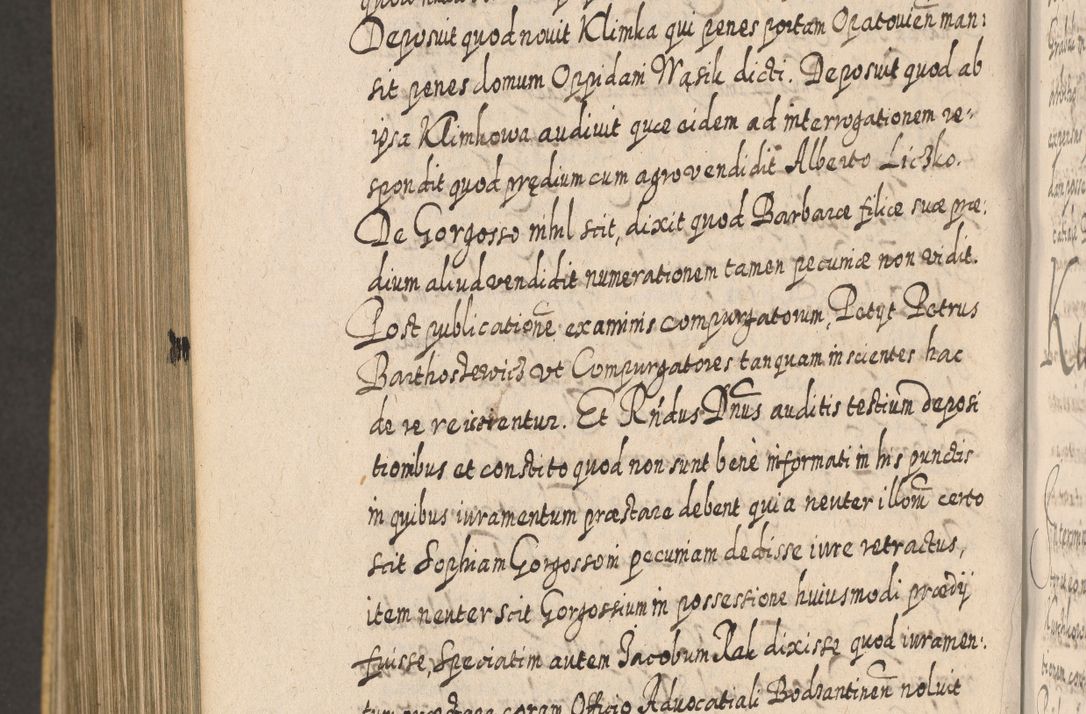 Deposuit quod novit Klimka qui penes portam Opatovien̄ man:
sit penes domum Oppidani Wąsik dicti. Deposuit quod ab
ipsa Klimkowa audivit quæ eidem ad interrogationem re-
spondit quod prędium cum agro vendidit Alberto Liczko.
De Gorgosso nihil scit, dixit quod Barbaræ filiæ suæ præ:
dium aliud vendidit numerationem tamen pecuniæ non vidit.
Post publicatione̅ examinis compurgatorum, Petyt Petrus
Barthosiewicz ut Compurgatores tanquam inscientes hac
de re reiicerentur. Et Rńdus Dn̅us auditis testium deposi
tionibus et constito quod non sunt bene informati in his punctis
in quibus iuramentum præstare debent quia neuter illoru̅ certo
scit Sophiam Gorgossoni pecuniam dedisse iure retractus,
item neuter scit Gorgossium in possessione huiusmodi prædij
fuisse, Speciatim autem Jacobum Rak dixisse quod iuramen:
tum præstare coram Officio Advocatiali Bodzantinen̄ noluit